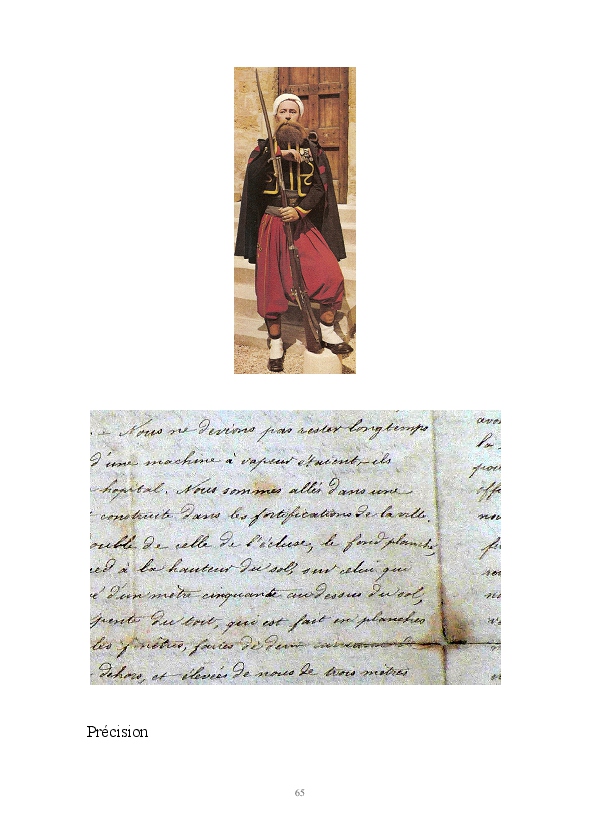 Nous ne devions pas rester longtemps
d'une machine à vapeur étaient, ils
hopital. Nous sommes allés dans une
construite dans les fortifications de la ville.
ouble de celle de l'écluse, le fond planche,
ied à la hauteur du sol, sur celui qui
d'un mètre cinquante au dessus du sol,
pente du toit, qui est fait en planches
les fenêtres, faites de deux
dehors, et élevées de nous de trois mètres
avo
la
pou
offi
no
Précision
65